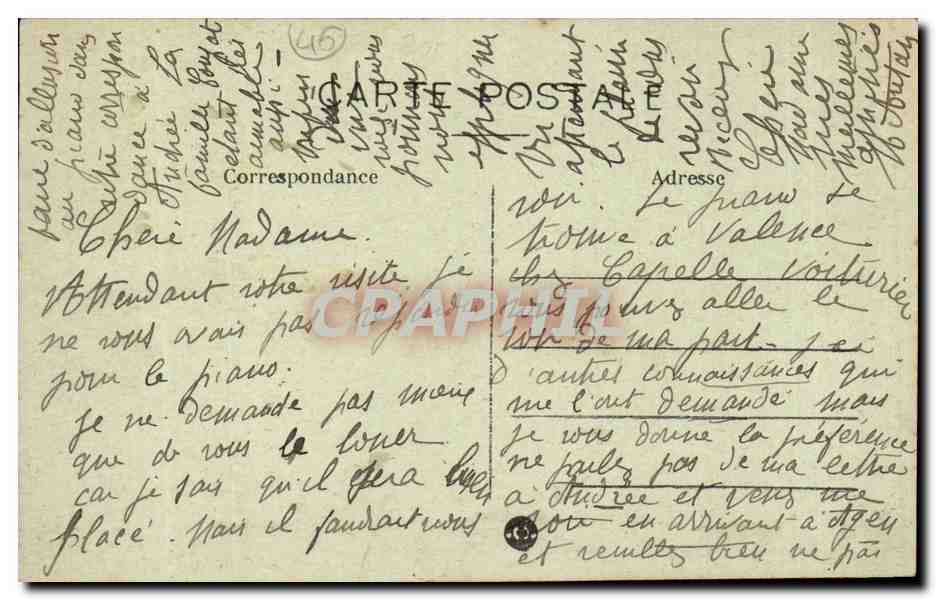 CARTE POSTALE
Correspondance
Adresse
45
Chere Madame.
Attendant votre visite, je
ne vous avais pas repondu
pour le piano.
Je ne demande pas mieux
que de vous le louer
car je sais qu'il sera bien
placé. Mais il faudrait vous
voir. Le piano se
trouve à Valence
chez Capelle voiturier
vous pouvez aller le
voir de ma part. j'ai
d'autres connaissances qui
me l'ont demandé mais
je vous donne la préférence
ne parlez pas de ma lettre
à Andrée et venez me
voir en arrivant à Agen
et veuillez bien ne pas
faire d'allusion
au piano dans
votre correspon
dance à
Andrée La
famille
étant des
aimable
aussi
vous
pouvons
nous
expliquer
Un
apprenant
le
revoir
Chère
Madame
mes
meilleures
amitiés
CRAPHIL